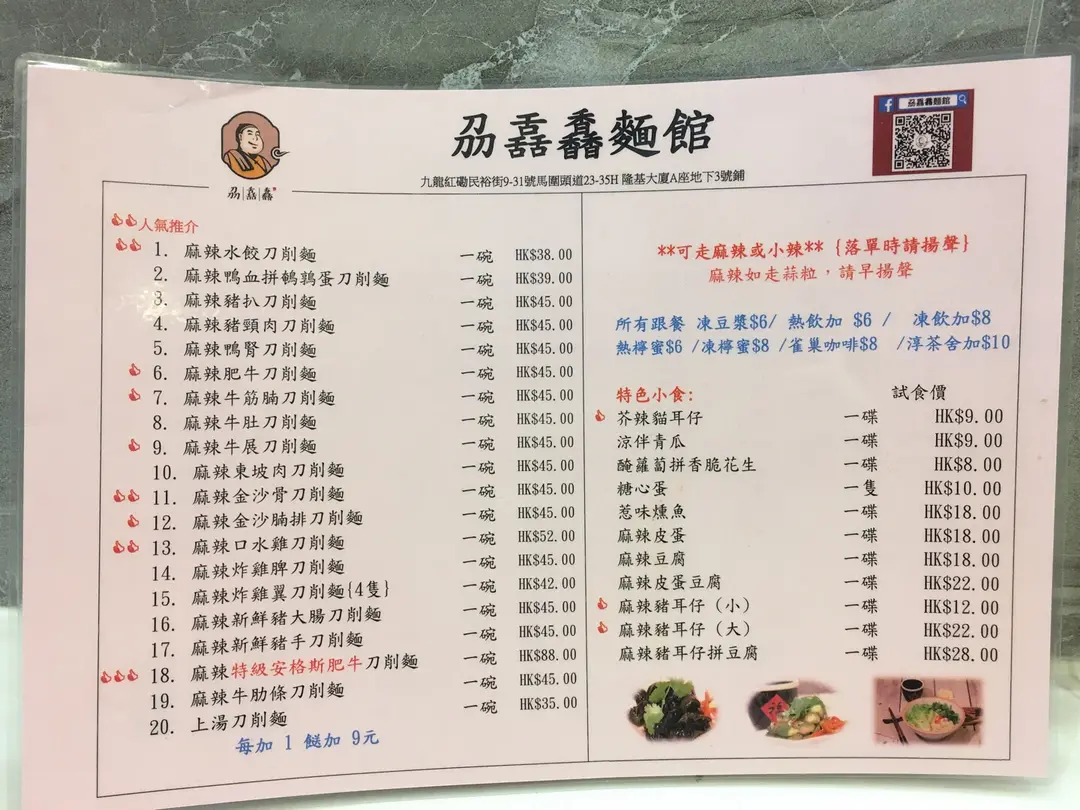 刕舙馫麵館
九龍紅磡民裕街9-31號馬圍頭道23-35H 隆基大廈A座地下3號鋪
刕舙馫
f 刕舙馫麵館
人氣推介
1. 麻辣水餃刀削麵 一碗 HK$38.00
2. 麻辣鴨血拼鵪鶉蛋刀削麵 一碗 HK$39.00
3. 麻辣豬扒刀削麵 一碗 HK$45.00
4. 麻辣豬頸肉刀削麵 一碗 HK$45.00
5. 麻辣鴨腎刀削麵 一碗 HK$45.00
6. 麻辣肥牛刀削麵 一碗 HK$45.00
7. 麻辣牛筋腩刀削麵 一碗 HK$45.00
8. 麻辣牛肚刀削麵 一碗 HK$45.00
9. 麻辣牛展刀削麵 一碗 HK$45.00
10. 麻辣東坡肉刀削麵 一碗 HK$45.00
11. 麻辣金沙骨刀削麵 一碗 HK$45.00
12. 麻辣金沙腩排刀削麵 一碗 HK$45.00
13. 麻辣口水雞刀削麵 一碗 HK$52.00
14. 麻辣炸雞脾刀削麵 一碗 HK$45.00
15. 麻辣炸雞翼刀削麵{4隻} 一碗 HK$42.00
16. 麻辣新鮮豬大腸刀削麵 一碗 HK$45.00
17. 麻辣新鮮豬手刀削麵 一碗 HK$45.00
18. 麻辣特級安格斯肥牛刀削麵 一碗 HK$88.00
19. 麻辣牛肋條刀削麵 一碗 HK$45.00
20. 上湯刀削麵 一碗 HK$35.00
每加 1 餸加 9元
**可走麻辣或小辣** {落單時請揚聲}
麻辣如走蒜粒，請早揚聲
所有跟餐 凍豆漿$6/ 熱飲加 $6 / 凍飲加$8
熱檸蜜$6 /凍檸蜜$8 /雀巢咖啡$8 /淳茶舍加$10
特色小食: 試食價
芥辣貓耳仔 一碟 HK$9.00
涼伴青瓜 一碟 HK$9.00
醃蘿蔔拼香脆花生 一碟 HK$8.00
糖心蛋 一隻 HK$10.00
惹味燻魚 一碟 HK$18.00
麻辣皮蛋 一碟 HK$18.00
麻辣豆腐 一碟 HK$18.00
麻辣皮蛋豆腐 一碟 HK$22.00
麻辣豬耳仔（小） 一碟 HK$12.00
麻辣豬耳仔（大） 一碟 HK$22.00
麻辣豬耳仔拼豆腐 一碟 HK$28.00